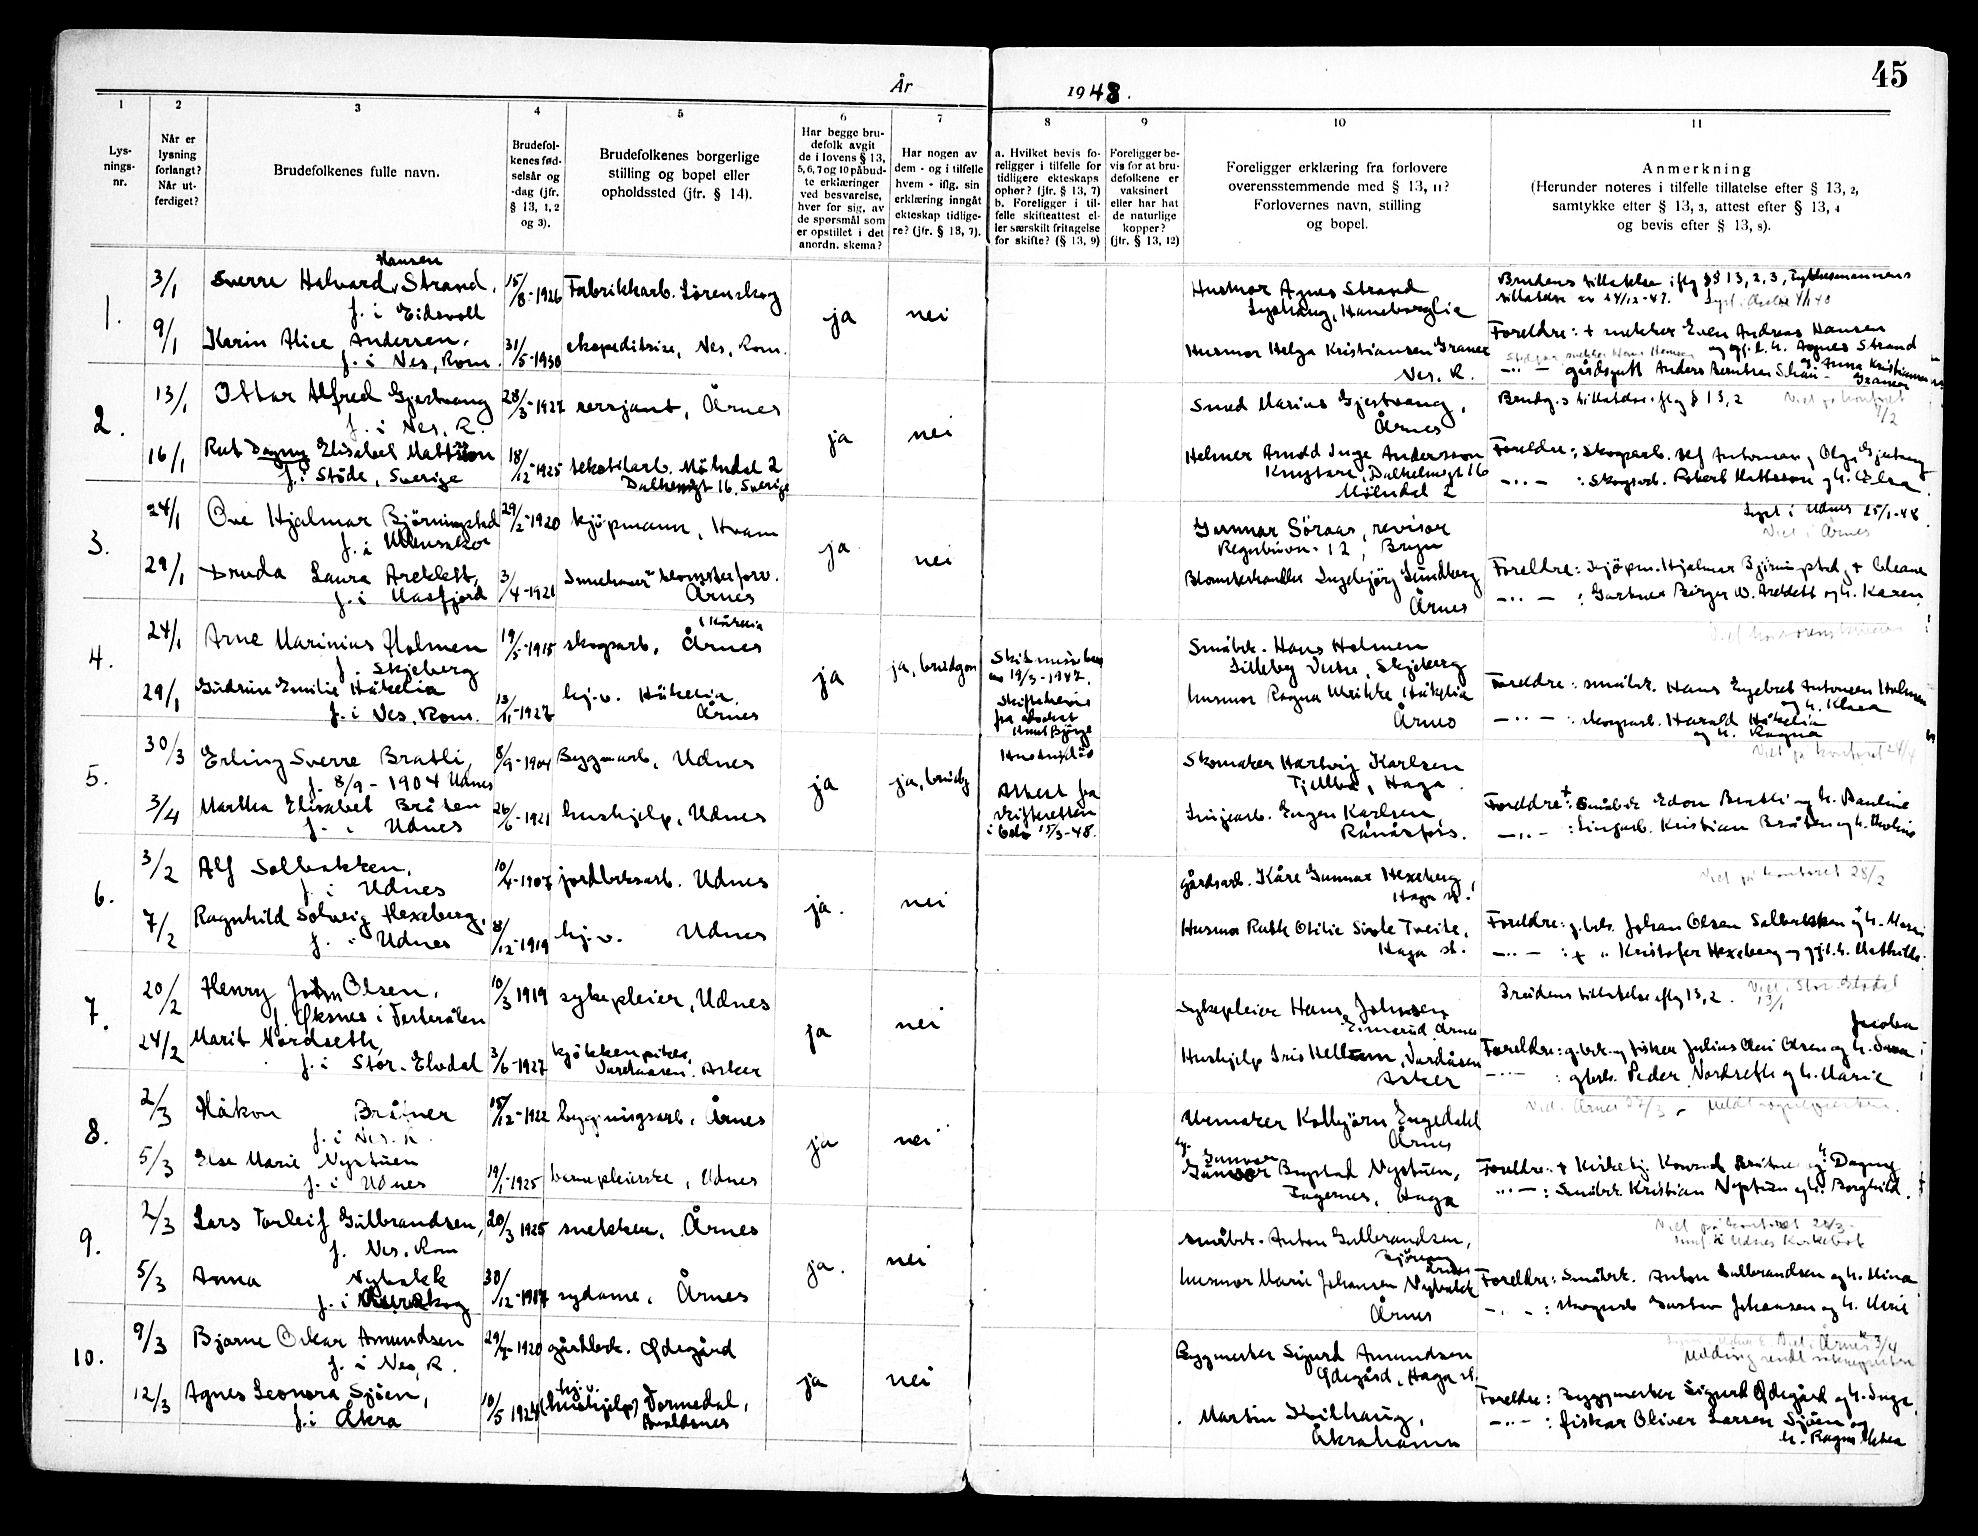 45
År 1948.
1 2 3 4 5 6 7 8 9 10 11
Lys-
nings-
nr.
Når er
lysning
forlangt?
Når ut-
ferdiget?
Brudefolkenes fulle navn.
Brudefol-
kenes fød-
selsår og
-dag (jfr.
§ 13, 1, 2
og 3).
Brudefolkenes borgerlige
stilling og bopel eller
opholdssted (jfr. § 14).
Har begge bru-
defolk avgit
de i lovens § 13,
5, 6, 7 og 10 påbud-
te erklæringer
ved besvarelse,
hver for sig, av
de spørsmål som
er opstillet i det
anordn. skema?
Har nogen av
dem - og i tilfelle
hvem - iflg. sin
erklæring inngått
ekteskap tidlige-
re? (jfr. § 13, 7).
a. Hvilket bevis fo-
religger i tilfelle for
tidligere ekteskaps
ophør? (jfr. § 13, 7)
b. Foreligger i til-
felle skifteattest el-
ler særskilt fritagelse
for skifte? (§ 13, 9)
Foreligger be-
vis for at bru-
defolkene er
vaksinert
eller har hat
de naturlige
kopper?
(jfr. § 13, 12)
Foreligger erklæring fra forlovere
overensstemmende med § 13, 11?
Forlovernes navn, stilling
og bopel.
Anmerkning
(Herunder noteres i tilfelle tillatelse efter § 13, 2,
samtykke efter § 13, 3, attest efter § 13, 4
og bevis efter § 13, 8).
1.
3/1
Hansen
Sverre Halvard Strand,
f. i Eidsvoll
15/8-1926
Fabrikkarb. Lörenskog
ja
nei
Husmor Agnes Strand
Brudens tillatelse iflg §§ 13, 2, 3,
tillatelse av 24/12-47.
9/1
Karin Alice Andersen,
f. i Nes, Rom.
31/5-1930
ekspeditrise, Nes, Rom.
Husmor Helga Kristiansen Graner
Nes. R.
Foreldre: + snekker Even Andreas Hansen
og gj. l. h. Agnes Strand
2.
13/1
Ottar Alfred Gjestvang
f. i Nes, R.
28/3-1927
sersjant, Årnes
ja
nei
Smed Marius Gjestvang,
Årnes
Brudg.s tillatelse iflg § 13, 2
16/1
Rut Dagny Elisabet Mattsson
f. i Stöde, Sverige
18/12-1925
tekstilarb. Mölndal 2
16, Sverige
Helmer Arnold Inge Andersson
16
Mölndal 2
Foreldre: Skogsarb.
- " - : Skogsarb. Robert Mattsson og h. Elsa
3.
24/1
Ove Hjalmar Björningstad
f. i Ullensaker
29/2-1920
kjöpmann, Hvam
ja
nei
Gunnar Söraas, revisor
12, Bryn
Lyst i Udnes 25/1-48
Viet i Årnes
29/1
Druda Laura Areklett,
f. i Masfjord
3/4-1921
Innehaver blomsterforr.
Årnes
Blomsterhandler Ingebjörg Lundberg
Årnes
Foreldre: kjöpm. Hjalmar Björningstad og + Oleane
- " - : Gartner Birger W. Areklett og h. Karen
4.
24/1
Arne Marinius Holmen
f. Skjeberg
19/5-1915
skogsarb, Årnes
ja
ja, brudgom
19/3-1947.
Skiftebevis
fra advokat
Småbr. Hans Holmen
Skjeberg
29/1
Gudrun Emilie Håkelia
f. i Nes, Rom.
13/11-1927
hj.v. Håkelia,
Årnes
husmor Ragna Ulrikke Håkelia
Årnes
Foreldre: småbr. Hans Engebret Antonsen Holmen
og h. Klara
- " - : skogsarb. Harald Håkelia
og h. Ragna
5.
30/3
Erling Sverre Bratli,
f. 8/9-1904 Udnes
8/9-1904
Byggnarb, Udnes
ja
ja, brudg
Attest fra
skifteretten
15/3-48.
Skomaker Hartvig Karlsen
Haga
3/4
Martha Elisabet Bråten
f. i Udnes
26/6-1921
hushjelp, Udnes
Eugen Karlsen,
Rånåsfoss.
Foreldre: + Småbr. Edon Bratli og h. Pauline
- " - : Kristian Bråten og h.
6.
3/2
Alf Solbakken,
f. i Udnes
10/4-1907
jordbruksarb. Udnes
ja.
nei
gårdsarb. Kåre Gunnar Hexeberg,
Haga st.
Viet på kontoret 28/2
7/2
Ragnhild Solveig Hexeberg,
f. i Udnes
8/12-1919
hj.v. Udnes
Husmor Ruth Otilie Sivle Tveite,
Haga st.
Foreldre: g.brk. Johan Olsen Solbakken og h.
- " - : + " Kristofer Hexeberg og gj.l.h. Mathilde.
7.
20/2
Henry John Olsen,
f. Øksnes i Vesterålen
10/3 1919
sykepleier, Udnes
ja
nei
Sykepleier Hans Johnsen
Årnes
Brudens tillatelse iflg 13, 2.
24/2
Marit Nordseth,
f. i Stor-Elvdal
3/6-1927
kjökkenpike,
Vardaasen. Asker
Hushjelp Iris Hellum, Vardåsen
Asker
Foreldre: g.brk. og fisker Julius Olai Olsen og h.
Jacoba
: gbrk. Peder Nordseth og h. Marie
8.
2/3
Håkon Bråtner
f. i Nes. R.
15/12-1922
bygningsarb, Årnes
ja
nei
Urmaker Kolbjörn Engedahl
Årnes
5/3
Else Marie Nystuen
f. i Udnes
19/1-1925
barnepleierske, Udnes
Gunvor Bagstad Nystuen,
Fagernes, Haga
Foreldre: + Kirketj. Konrad Bråtner og h. Dagny
- " - : Småbr. Kristian Nystuen og h. Borghild.
9.
2/3
Lars Torleif Gulbrandsen,
f. Nes. Rom
20/3 1925
snekker, Årnes
ja.
nei
småbr. Anton Gulbrandsen,
Viet på kontoret
Udnes Kirkebok
5/3
Anna Nybakk
f. i Aurskog
30/12-1917
sydame, Årnes
husmor Marie Johansen Nybakk
Årnes
Foreldre: Småbr. Anton Gulbrandsen og h. Mina
- " - : skogsarb Gustav Johansen og h.
10.
9/3
Bjarne Oskar Amundsen
f. i Nes, R.
29/7-1920
gårdbrk. Ødegård
ja
nei
Byggmester Sigurd Amundsen
Ødegård, Haga st.
Viet i Årnes k 3/4
Melding sendt
12/3
Agnes Leonora Sjöen,
f. i Åkra
10/5 1924
hj.v.
(hushjelp) Tormedal,
Avaldsnes
Martin Kvilhaug,
Åkrahamn
Foreldre: Byggmester Sigurd Ødegård og h. Inga
- " - : fisker Oliver Larsen Sjöen og
h. Ragna